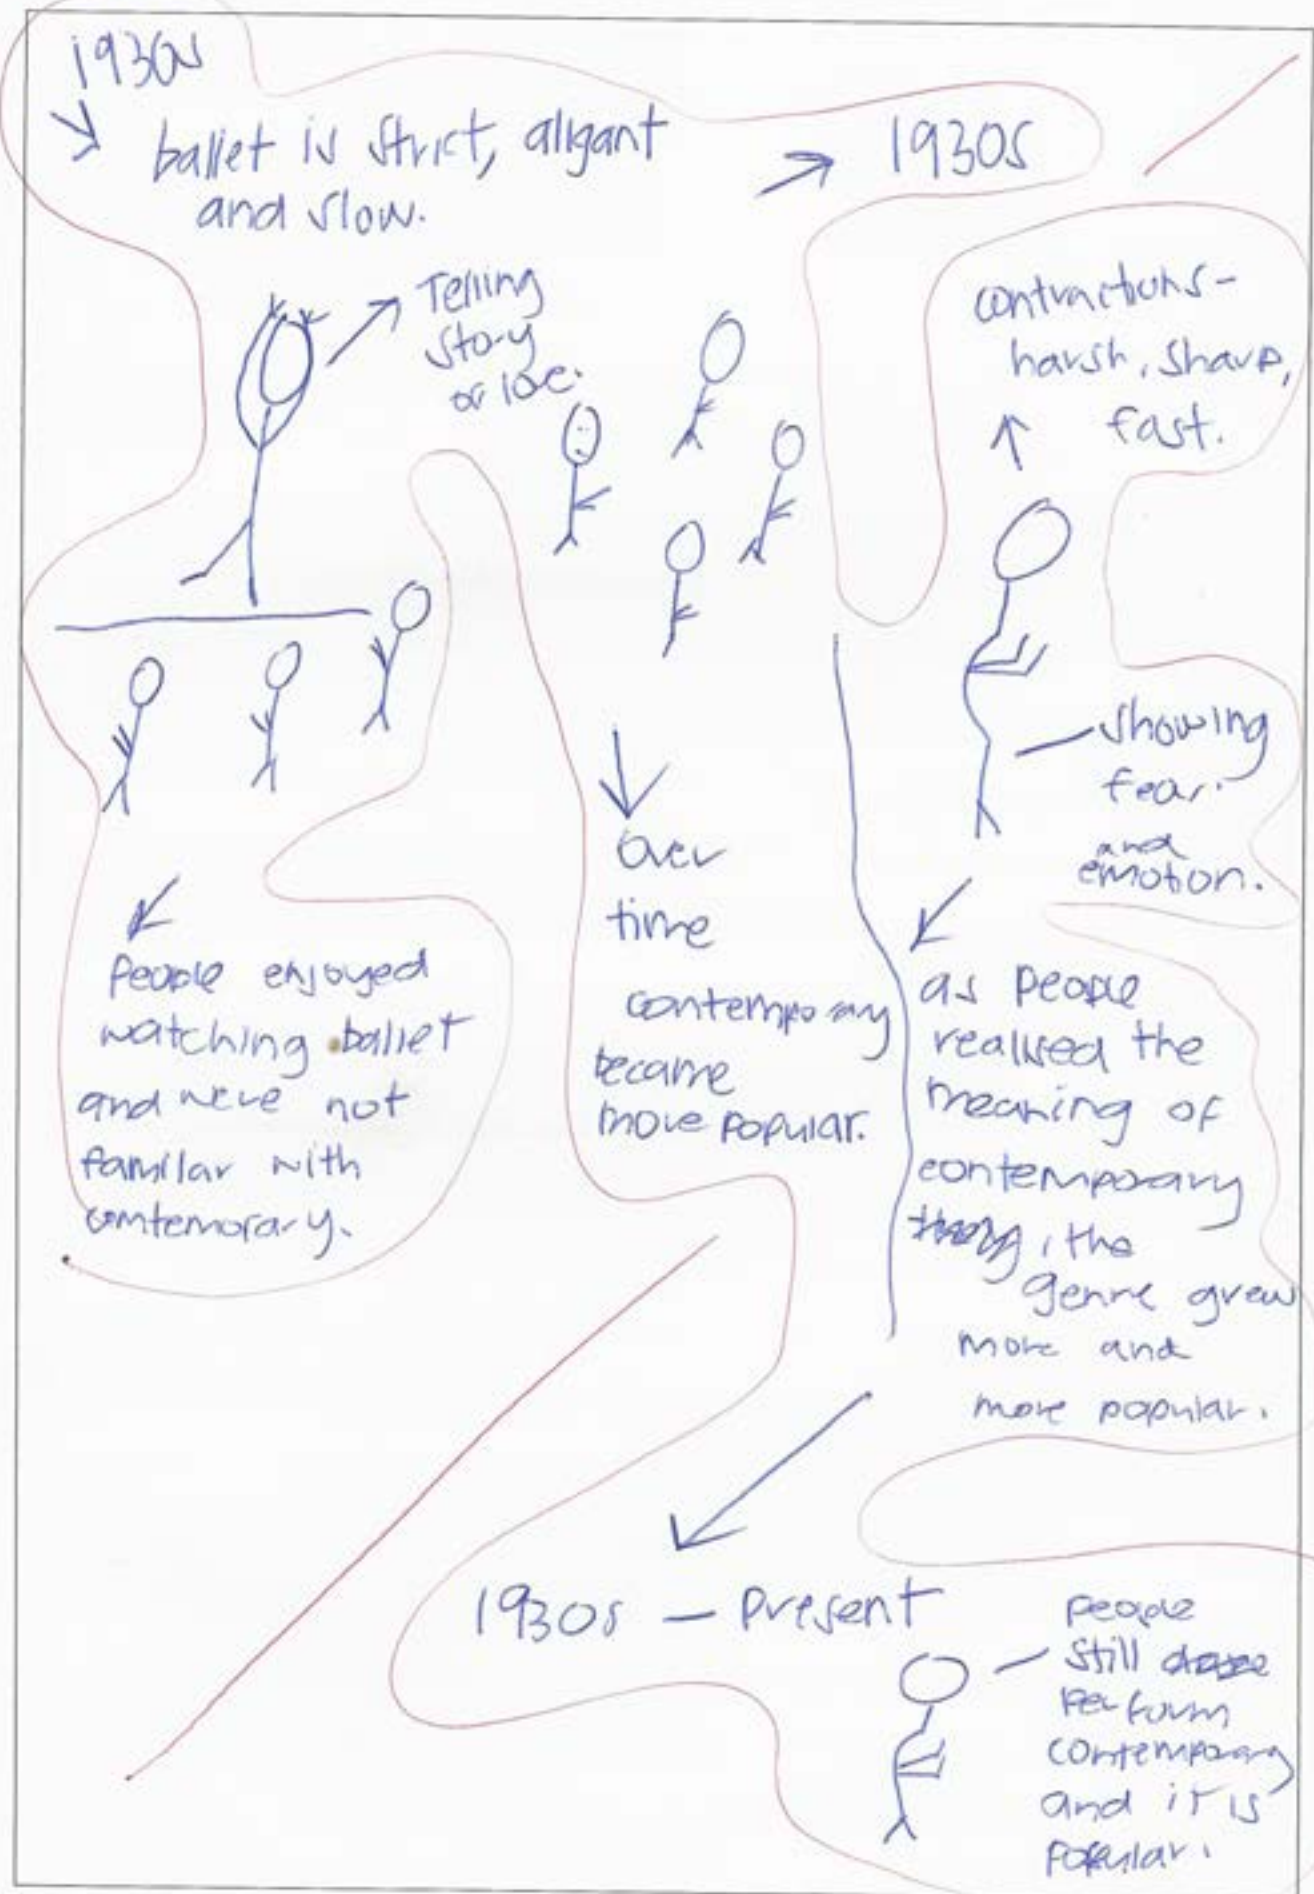 1930s
ballet is strict, aligant
and slow.
1930s
Telling
story
or
contractions-
harsh, sharp,
fast.
showing
fear.
and
emotion.
People enjoyed
watching ballet
and were not
familar with
contemorary.
Over
time
contemporary
became
more popular.
as people
realised the
meaning of
contemporary
, the
genre grew
more and
more popular.
1930s — Present
people
still
perform
contemporary
and it is
popular.